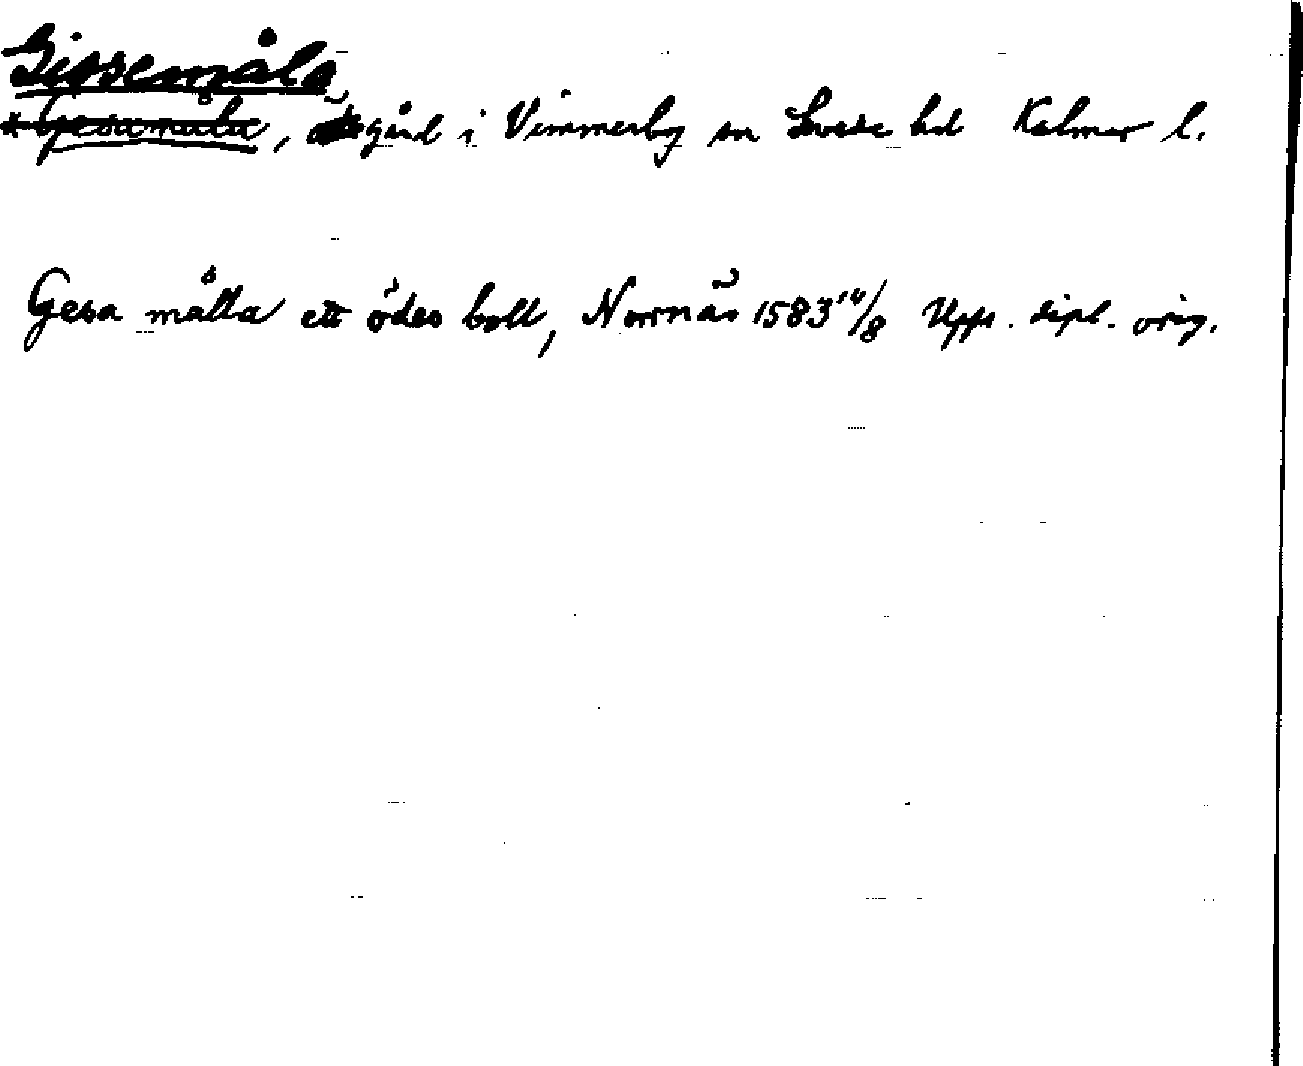 Gissemåla
* Gesamåla, gård i Vimmerby sn Sevede hd Kalmar l.
Gesa målla ett ödes boll, Norrnäs 1583 14/8 Upps. dipl. orig.